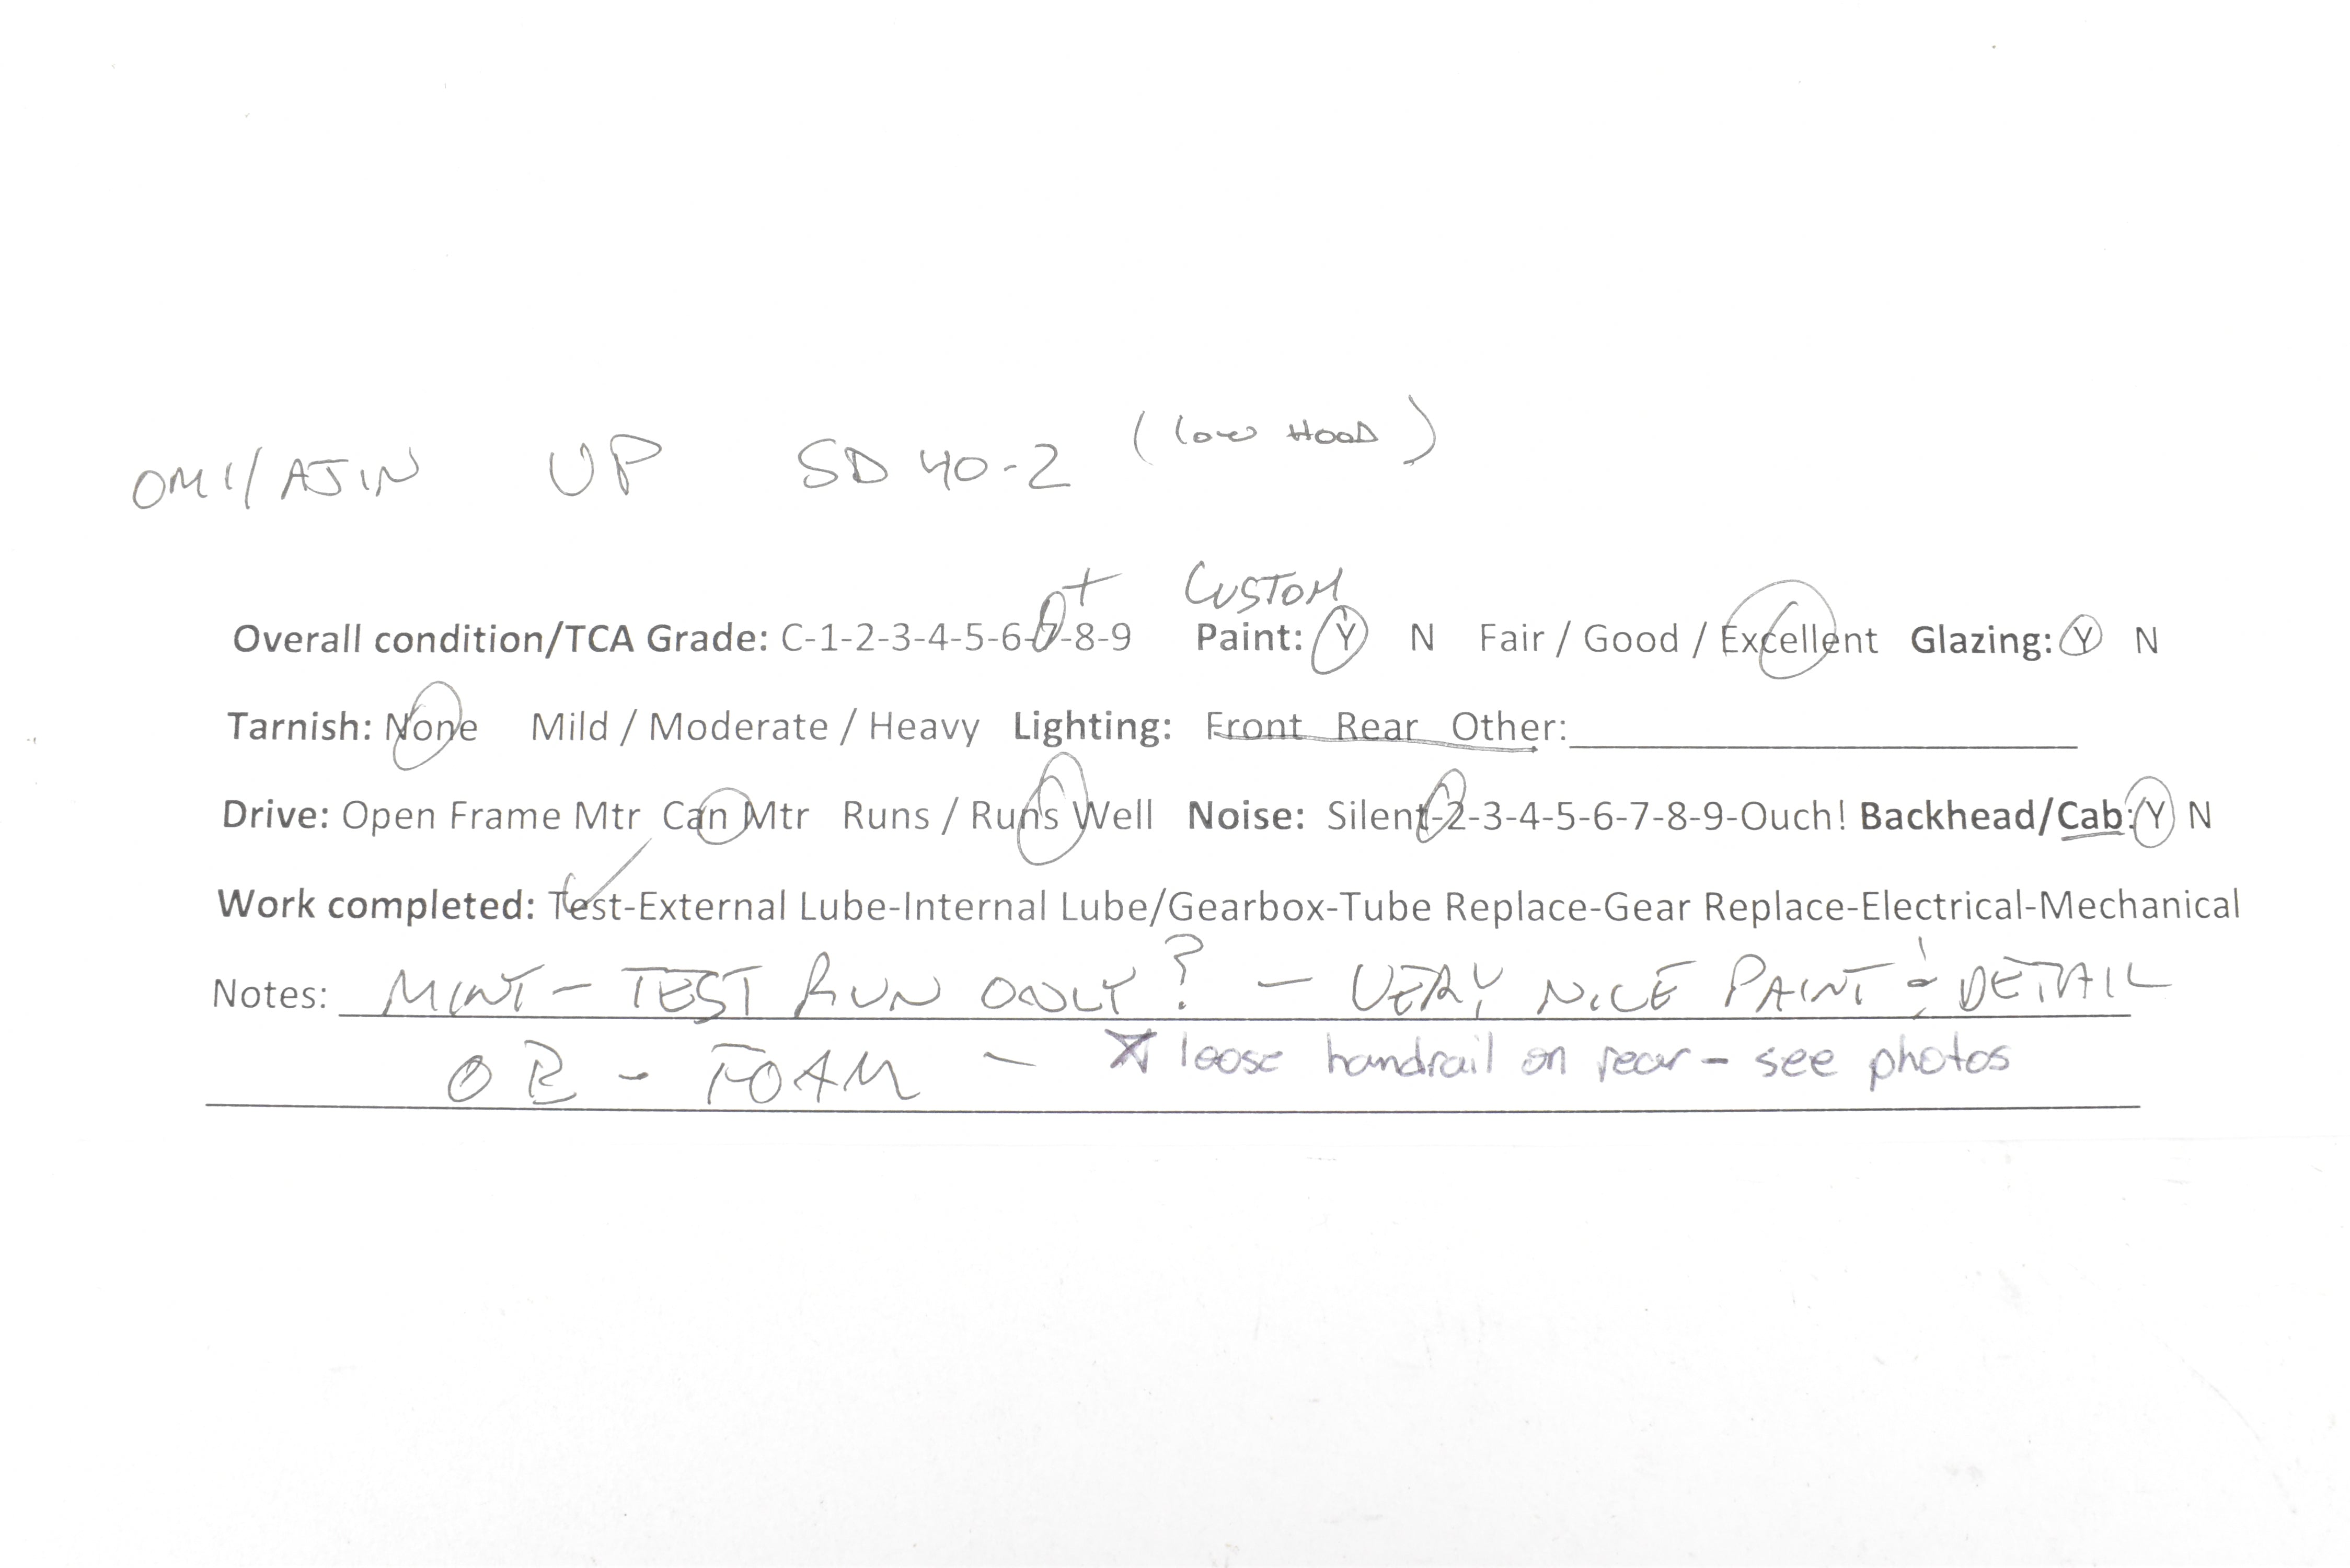 (low HOOD)
OMI/AJIN UP SD 40-2
+ CUSTOM
Overall condition/TCA Grade: C-1-2-3-4-5-6-7-8-9 Paint: Y N Fair / Good / Excellent Glazing: Y N
Tarnish: None Mild / Moderate / Heavy Lighting: Front Rear Other:
Drive: Open Frame Mtr Can Mtr Runs / Runs Well Noise: Silent-2-3-4-5-6-7-8-9-Ouch! Backhead/Cab: Y N
Work completed: Test-External Lube-Internal Lube/Gearbox-Tube Replace-Gear Replace-Electrical-Mechanical
Notes: MINT - TEST RUN ONLY? - VERY NICE PAINT & DETAIL
OB - FOAM - loose handrail on rear - see photos